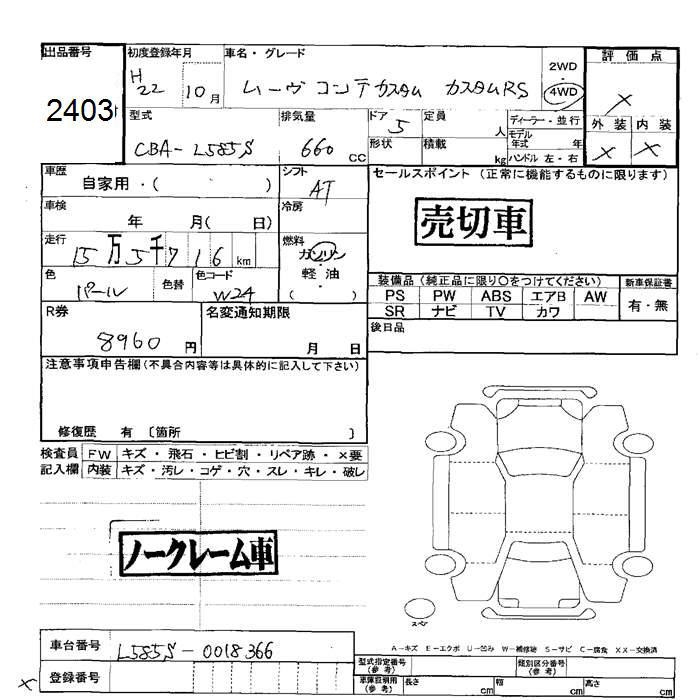 出品番号
2403
初度登録年月
H
22 10月
車名・グレード
ムーヴ コンテ カスタム カスタムRS
2WD
4WD
評価点
×
外装 内装
× ×
型式
CBA-L585S
排気量
660 CC
ドア
5
形状
定員
人
積載
kg
ディーラー・並行
モデル
年式 年
ハンドル 左・右
車歴
自家用・( )
シフト
AT
車検
年 月( 日)
冷房
走行
15万5千716km
燃料
ガソリン
・
軽油
( )
色
パール
色替
色コード
W24
セールスポイント (正常に機能するものに限ります)
売切車
装備品(純正品に限り○をつけてください)
PS PW ABS エアB AW
SR ナビ TV カワ
新車保証書
有・無
後日品
R券
8960 円
名変通知期限
月 日
注意事項申告欄(不具合内容等は具体的に記入して下さい)
修復歴 有 〔箇所 〕
検査員 FW キズ・飛石・ヒビ割・リペア跡・×要
記入欄 内装 キズ・汚レ・コゲ・穴・スレ・キレ・破レ
ノークレーム車
スペア
A-キズ E-エクボ U-凹み W-補修跡 S-サビ C-腐食 XX-交換済
車台番号
L585S-0018366
登録番号
×
型式指定番号
(参考)
類別区分番号
(参考)
車庫証明用
(参考)
長さ cm
幅 cm
高さ cm